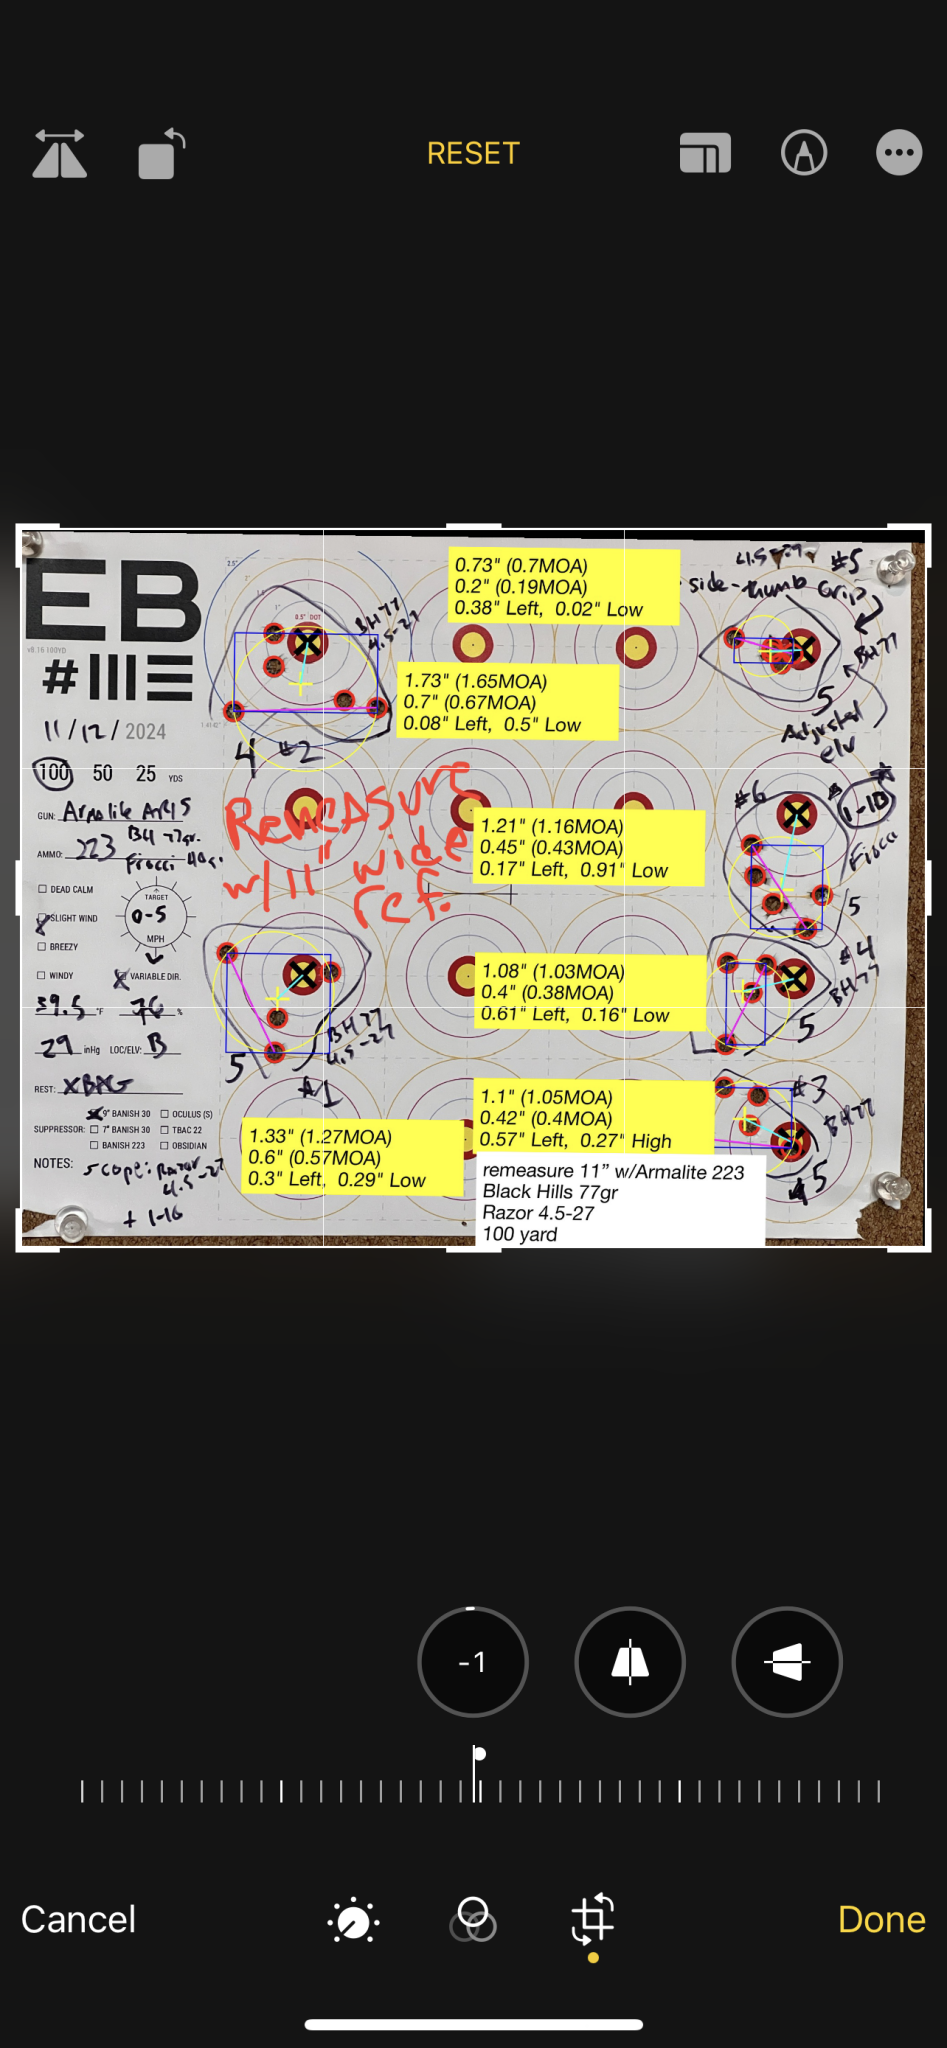 RESET
EB
#
v8.16 100YD
11/12/2024
100 50 25 YDS
GUN: Armalite AR15
BH 77gr.
AMMO: 223
Fiocci 40g.
DEAD CALM
SLIGHT WIND
BREEZY
WINDY
VARIABLE DIR.
TARGET
0-5
MPH
39.5 °F 76 %
29 inHg LOC/ELV: B
REST: XBAG
SUPPRESSOR:
9" BANISH 30
OCULUS (S)
7" BANISH 30
TBAC 22
BANISH 223
OBSIDIAN
NOTES: Scope: Razor
4.5-27
+ 1-10
2.5"
2"
1"
0.5" DOT
BH 77
4.5-27
4 #2
0.73" (0.7MOA)
0.2" (0.19MOA)
0.38" Left, 0.02" Low
4.5-27 #5
side-thumb Grip
BH 77
5
Adjusted
elv
1.73" (1.65MOA)
0.7" (0.67MOA)
0.08" Left, 0.5" Low
Remeasure
w/11" wide
ref.
1.21" (1.16MOA)
0.45" (0.43MOA)
0.17" Left, 0.91" Low
#6
1-10
Fiocci
5
1.08" (1.03MOA)
0.4" (0.38MOA)
0.61" Left, 0.16" Low
#4
BH 77
5
BH 77
4.5-27
5
#1
1.1" (1.05MOA)
0.42" (0.4MOA)
0.57" Left, 0.27" High
#3
BH77
5
1.33" (1.27MOA)
0.6" (0.57MOA)
0.3" Left, 0.29" Low
remeasure 11” w/Armalite 223
Black Hills 77gr
Razor 4.5-27
100 yard
-1
Cancel
Done